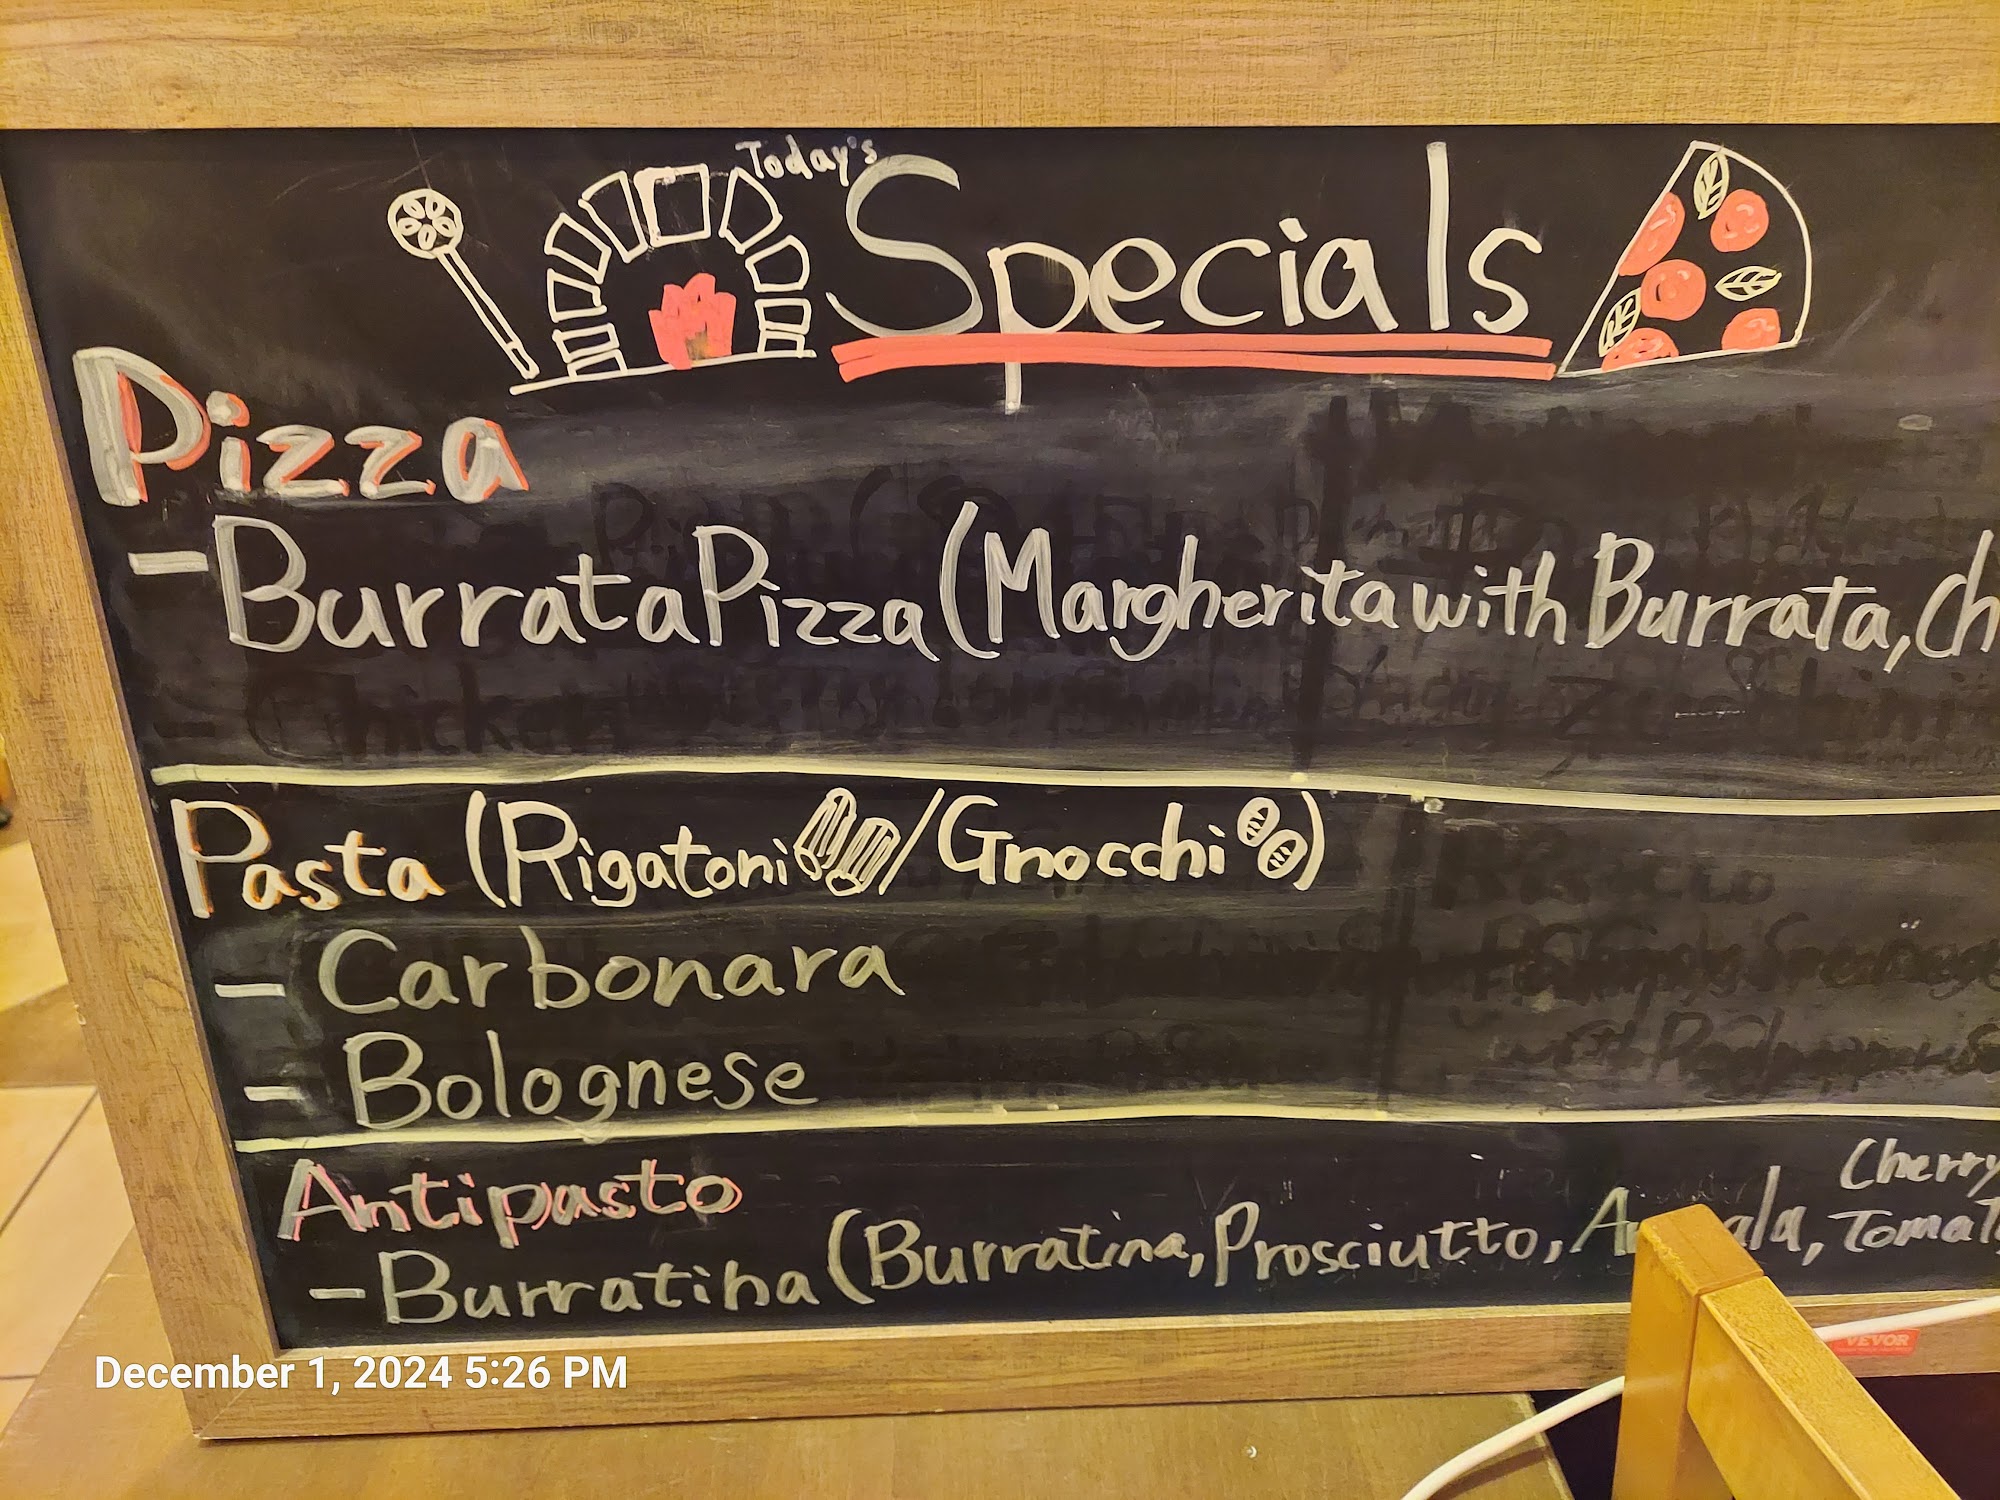 Today's
Specials
Pizza
- Burrata Pizza (Margherita with Burrata, Ch
Pasta (Rigatoni / Gnocchi)
- Carbonara
- Bolognese
Antipasto
- Burratina (Burratina, Prosciutto, Cherry
Tomat
December 1, 2024 5:26 PM
VEVOR